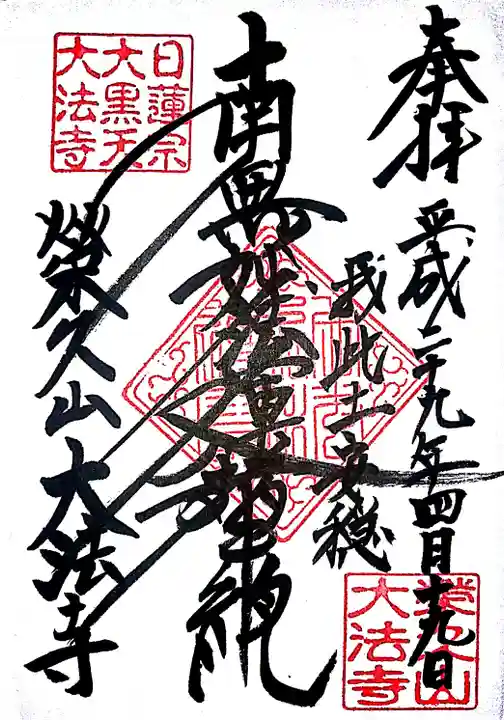 奉拝
平成二十九年四月十九日
我此土安穏
南無妙法蓮華経
日蓮宗
大黒天
大法寺
榮久山大法寺
榮久山
大法寺